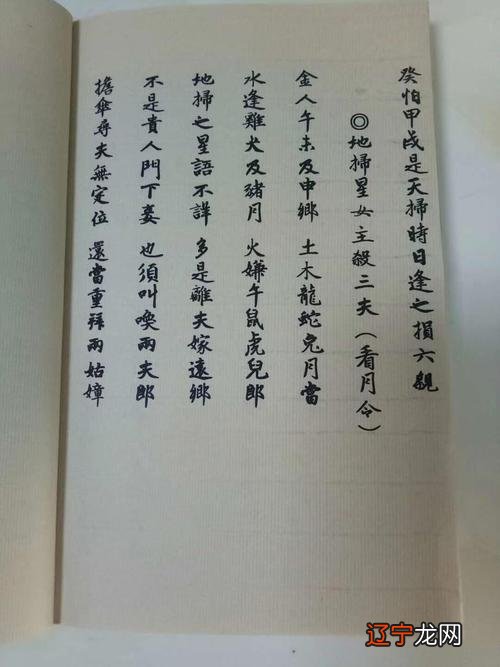 癸怕甲戌是天掃時日逢之損六親
◎地掃星女主殺三夫（看月令）
金人午未及申鄉 土木龍蛇兔月當
水逢雞犬及豬月 火嫌午鼠虎兒郎
地掃之星語不詳 多是離夫嫁遠鄉
不是貴人門下妾 也須叫喚兩夫郎
擔傘尋夫無定位 還當重拜兩姑嫜
辽宁龙网